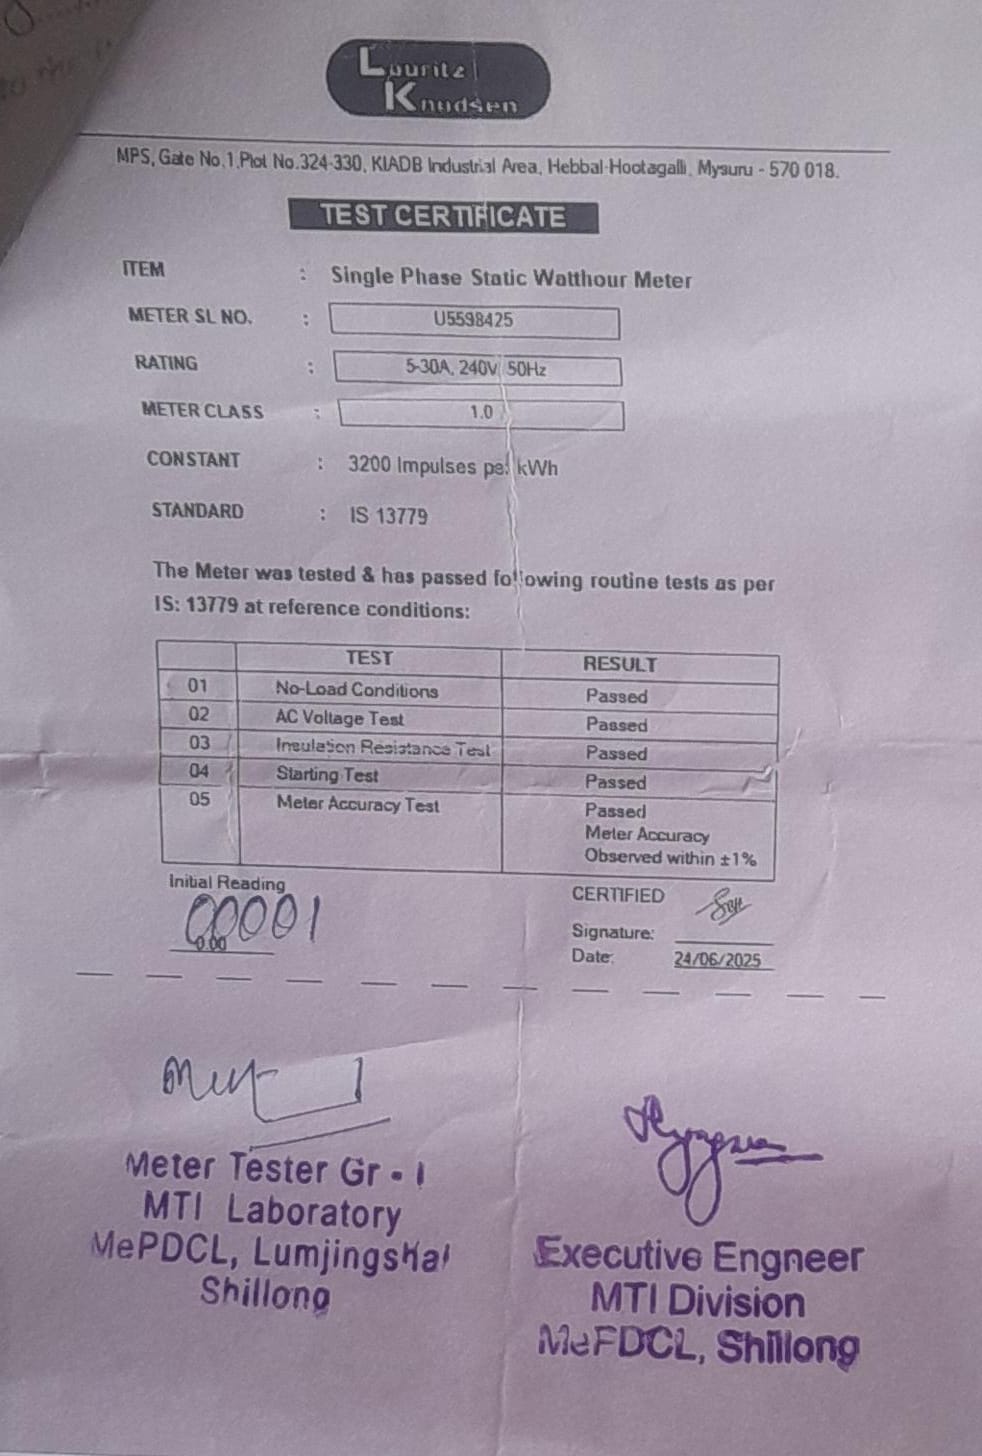 Lauritz
Knudsen
MPS, Gate No.1,Plot No.324-330, KIADB Industrial Area, Hebbal-Hootagalli, Mysuru - 570 018.
TEST CERTIFICATE
ITEM : Single Phase Static Watthour Meter
METER SL NO. : U5598425
RATING : 5-30A, 240V, 50Hz
METER CLASS : 1.0
CONSTANT : 3200 Impulses per kWh
STANDARD : IS 13779
The Meter was tested & has passed following routine tests as per
IS: 13779 at reference conditions:
TEST RESULT
01 No-Load Conditions Passed
02 AC Voltage Test Passed
03 Insulation Resistance Test Passed
04 Starting Test Passed
05 Meter Accuracy Test Passed
Meter Accuracy
Observed within ±1%
Initial Reading
00001
0.00
CERTIFIED
Signature:
Date: 24/06/2025
Meter Tester Gr - I
MTI Laboratory
MePDCL, Lumjingshai
Shillong
Executive Engneer
MTI Division
MePDCL, Shillong